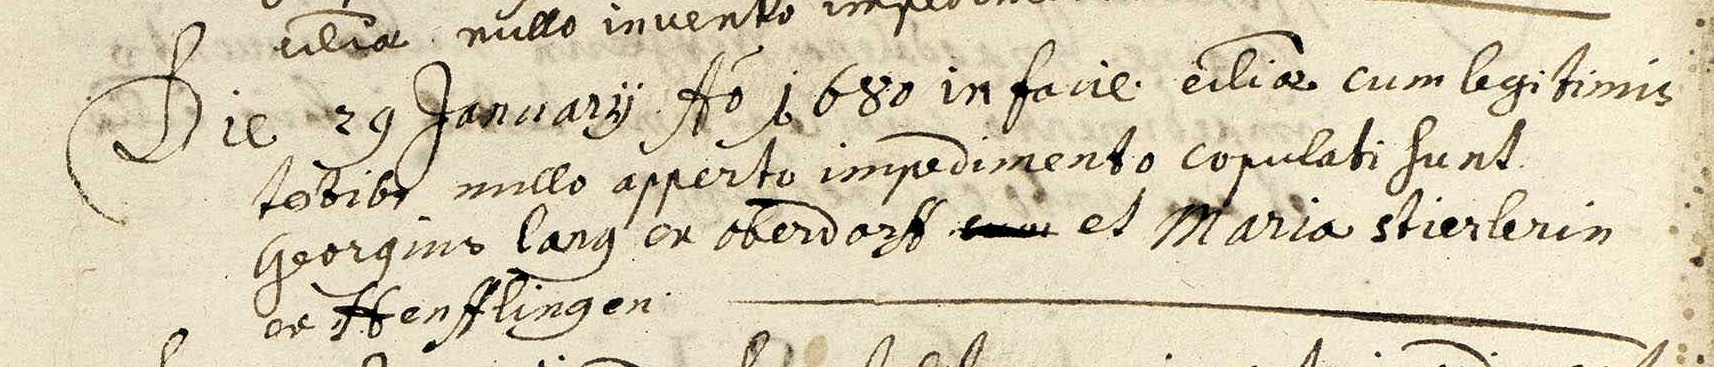 eccliae nullo invento impedimento
Die 29 Januarij Aõ 1680 in facie eccliae cum legitimis
testibus nullo apperto impedimento copulati sunt
Georgius Lang ex oberdorff et Maria stierlerin
ex Henfflingen.